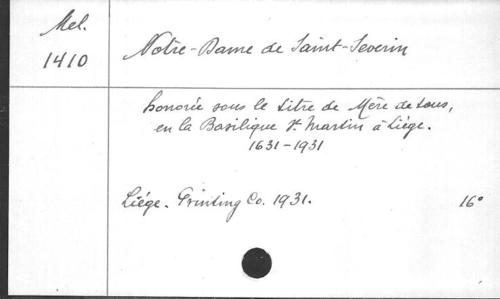 Mel.
1410
Notre-Dame de Saint-Severin
honorée sous le titre de Mère de tous,
en la Basilique St Martin à Liége.
1631-1931
Liége. Printing Co. 1931. 16°